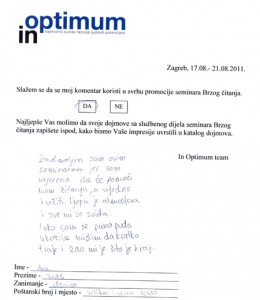 in optimum
Zagreb, 17.08.- 21.08.2011.
Slažem se da se moj komentar koristi u svrhu promocije seminara Brzog čitanja.
DA NE
Najljepše Vas molimo da svoje dojmove sa službenog dijela seminara Brzog
čitanja zapišete ispod, kako bismo Vaše impresije uvrstili u katalog dojmova.
In Optimum team
Zadovoljna sam ovim
seminarom jer sam
uvjerena da će pomoći
čitanju, a ujedno
i učiti. Lijepa je atmosfera
i sve mi se sviđa
sam se puno puta
mislim da kratko
traje i žao mi je što je kraj.
Ime - Ana
Prezime -
Zanimanje - učenica
Poštanski broj i mjesto - Velika Gorica